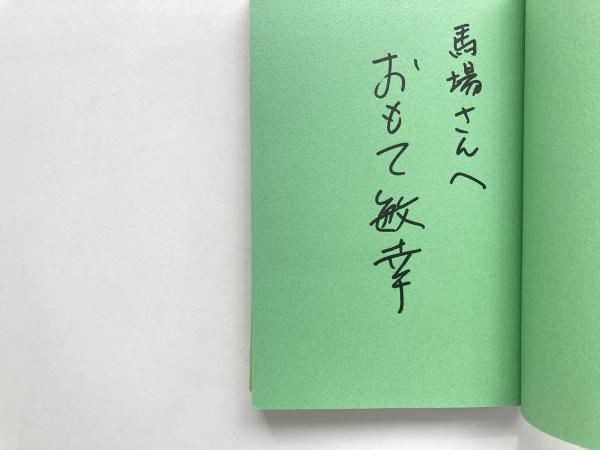 馬場さんへ
おもて敏幸